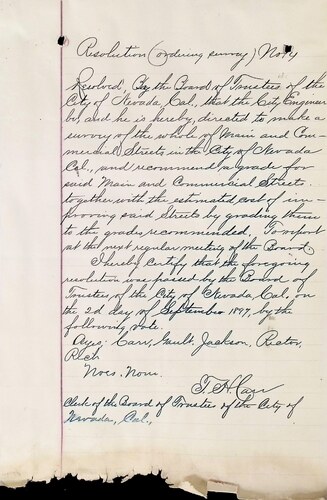 Resolution (ordering survey) No. 4
Resolved, By the Board of Trustees of the
City of Nevada, Cal., that the City Engineer
be, and he is hereby, directed to make a
survey of the whole of Main and Com-
mercial Streets in the City of Nevada
Cal., and recommend a grade for
said Main and Commercial Streets.
together with the estimated cost of im-
proving said Streets by grading them
to the grades recommended, To report
at the next regular meeting of the Board.
I hereby certify that the foregoing
resolution was passed by the Board of
Trustees, of the City of Nevada, Cal., on
the 2d day of September 1897, by the
following vote.
Ayes: Carr, Gault. Jackson. Rector.
Rich
Noes. None.
T. H. Carr
Clerk of the Board of Trustees of the City of
Nevada, Cal.,